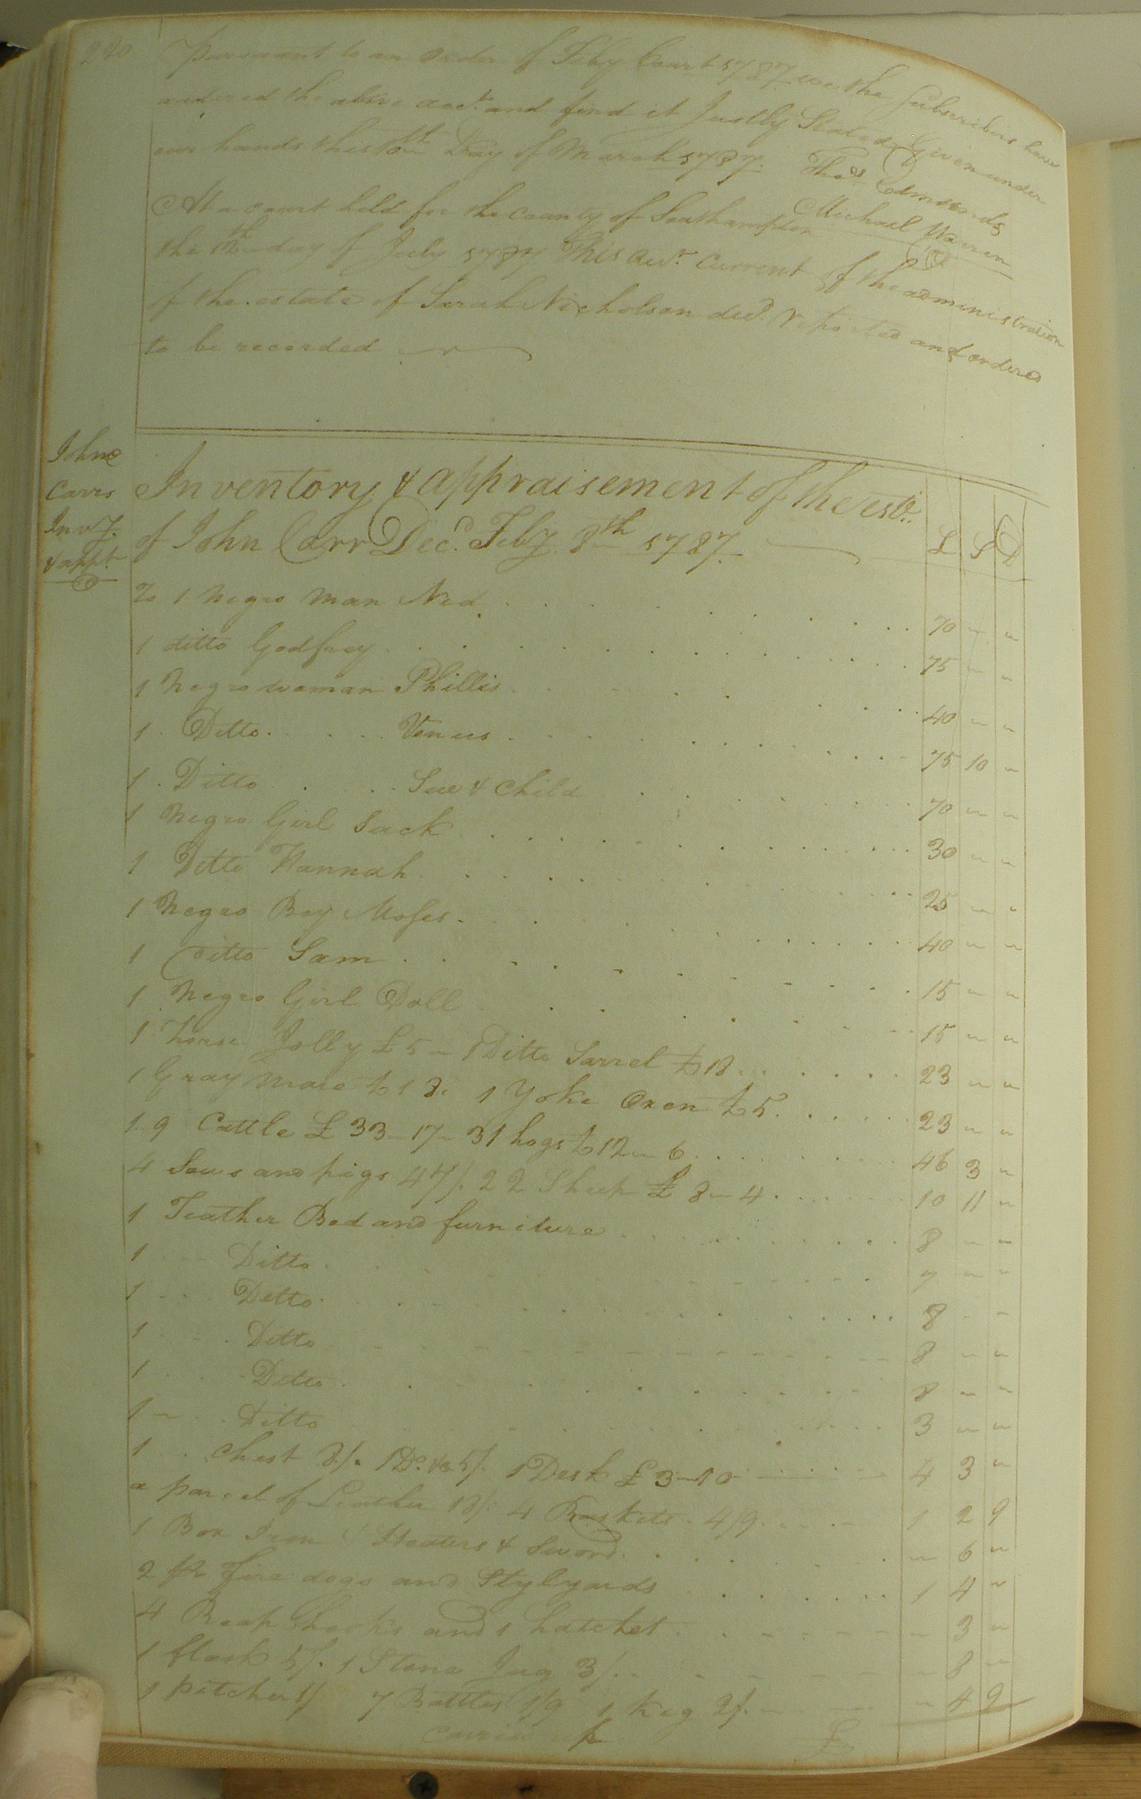 220
Pursuant to an order of Feby Court 1787. we the Subscribers have
audited the above acct. and find it Justly Stated Given under
our hands this 10th Day of March 1787. Thos. Edmonds
Michael Warren
At a court held for the county of Southampton
the 12th day of July 1787 This acct. Current of the administration
of the estate of Sarah Nicholson decd. reported and ordered
to be recorded
John
Carrs
Invy.
& appt.
Inventory & appraisement of the estt.
of John Carr Decd. Feby 8th 1787. £ S D
To 1 Negro man Ned 70 " "
1 ditto Godfrey 75 " "
1 Negro woman Phillis 40 " "
1 Ditto Venus 75 10 "
1 Ditto Sue & Child 70 " "
1 Negro Girl Suck 30 " "
1 Ditto Hannah 25 " "
1 Negro Boy Moses 40 " "
1 Ditto Sam 15 " "
1 Negro Girl Doll 15 " "
1 horse Jolly £5 - 1 Ditto Sarrel £18 23 " "
1 Gray mare £18. 1 Yoke Oxen £5. 23 " "
19 Cattle £33-17- 31 hogs £12-6 46 3 "
4 Sows and pigs 47/. 22 Sheep £8-4 10 11 "
1 Feather Bed and furniture 8 " "
1 Ditto 7 " "
1 Ditto 8 " "
1 Ditto 8 " "
1 Ditto 8 " "
1 Ditto 3 " "
1 Chest 8/. 1 Do. 5/. 1 Desk £3-10 4 3 "
a parcel of Leather 18/. 4 Baskets 4/9 1 2 9
1 Box Iron Heaters & Sword " 6 "
2 pr fire dogs and Stylyards 1 4 "
4 Reap hooks and 1 hatchet " 3 "
1 flask 5/. 1 Stone Jug 3/. " 8 "
1 Pitcher 1/ 7 Bottles 1/9 1 Keg 2/. " 4 9
£